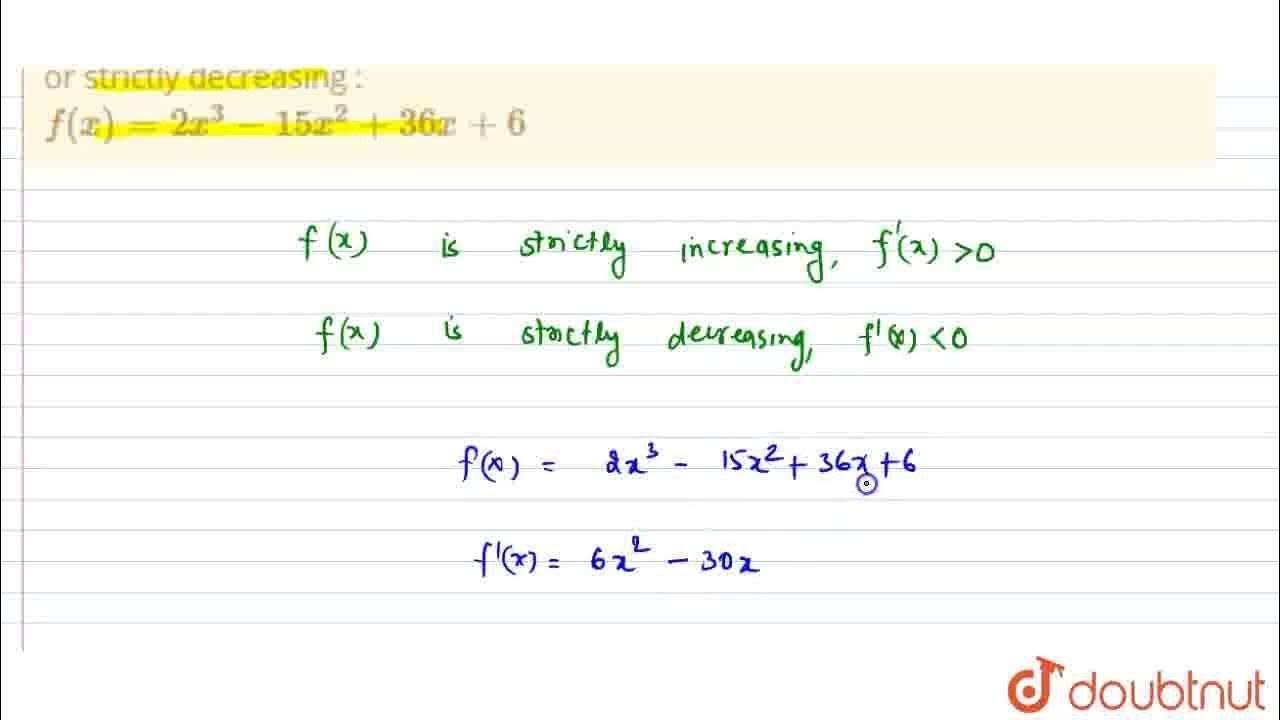 or strictly decreasing :
f(x) = 2x³ − 15x² + 36x + 6
f(x) is strictly increasing, f'(x) >0
f(x) is strictly decreasing, f'(x) <0
f(x) = 2x³ - 15x² + 36x + 6
f'(x) = 6x² - 30x
doubtnut